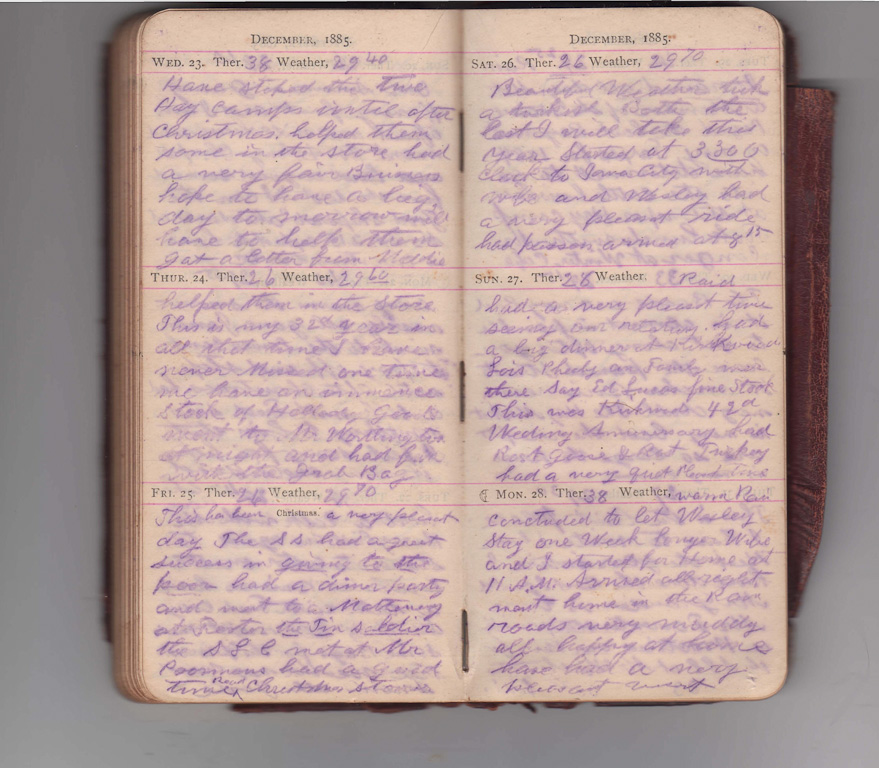 December, 1885.
Wed. 23. Ther. 38 Weather, 29 40
Have stoped the two
day camps until after
Christmas. helped them
some in the store had
a very fair Buisness
hope to have a big
day to morrow will
have to help them
got a letter from
Thur. 24. Ther. 26 Weather, 29 60
helped them in the store
This is my 32d year in
all that time I have
never Missed one time
we have an immence
Stock of Holladay Goods
went to Mr Worthington
at night and had fun
with the Grab Bag
Fri. 25. Ther. Weather, 29 90
Christmas.
This has been a very pleasant
day The S S had a great
success in giving to the
poor had a dinner party
and went to a Matteney
at the Tin Soldier
the S S C met at Mr
Poormans had a good
time, Read Christmas stories
December, 1885.
Sat. 26. Ther. 26 Weather, 29 70
Beautiful Weather took
a turkish Bath the
last I will take this
year Started at 3.30 O
clock to Iowa City with
Wife and Wesley had
a very pleasant ride
had arived at 8 15
Sun. 27. Ther. 28 Weather. Raid
had a very pleasant time
seeing our had
a big dinner at Kirkwood
Lois an Family were
there Say Ed Lucas fine Stock
This was Kirkwoods 42d
Weding had
Rost Goose & Rost Turkey
had a very quet time
Mon. 28. Ther. 38 Weather, warm Rain
concluded to let Wesley
stay one Week longer Wife
and I started for Home at
11 A.M. Arrived all right
went home in the Rain
roads very muddy
all happy at home
have had a very
pleasant visit